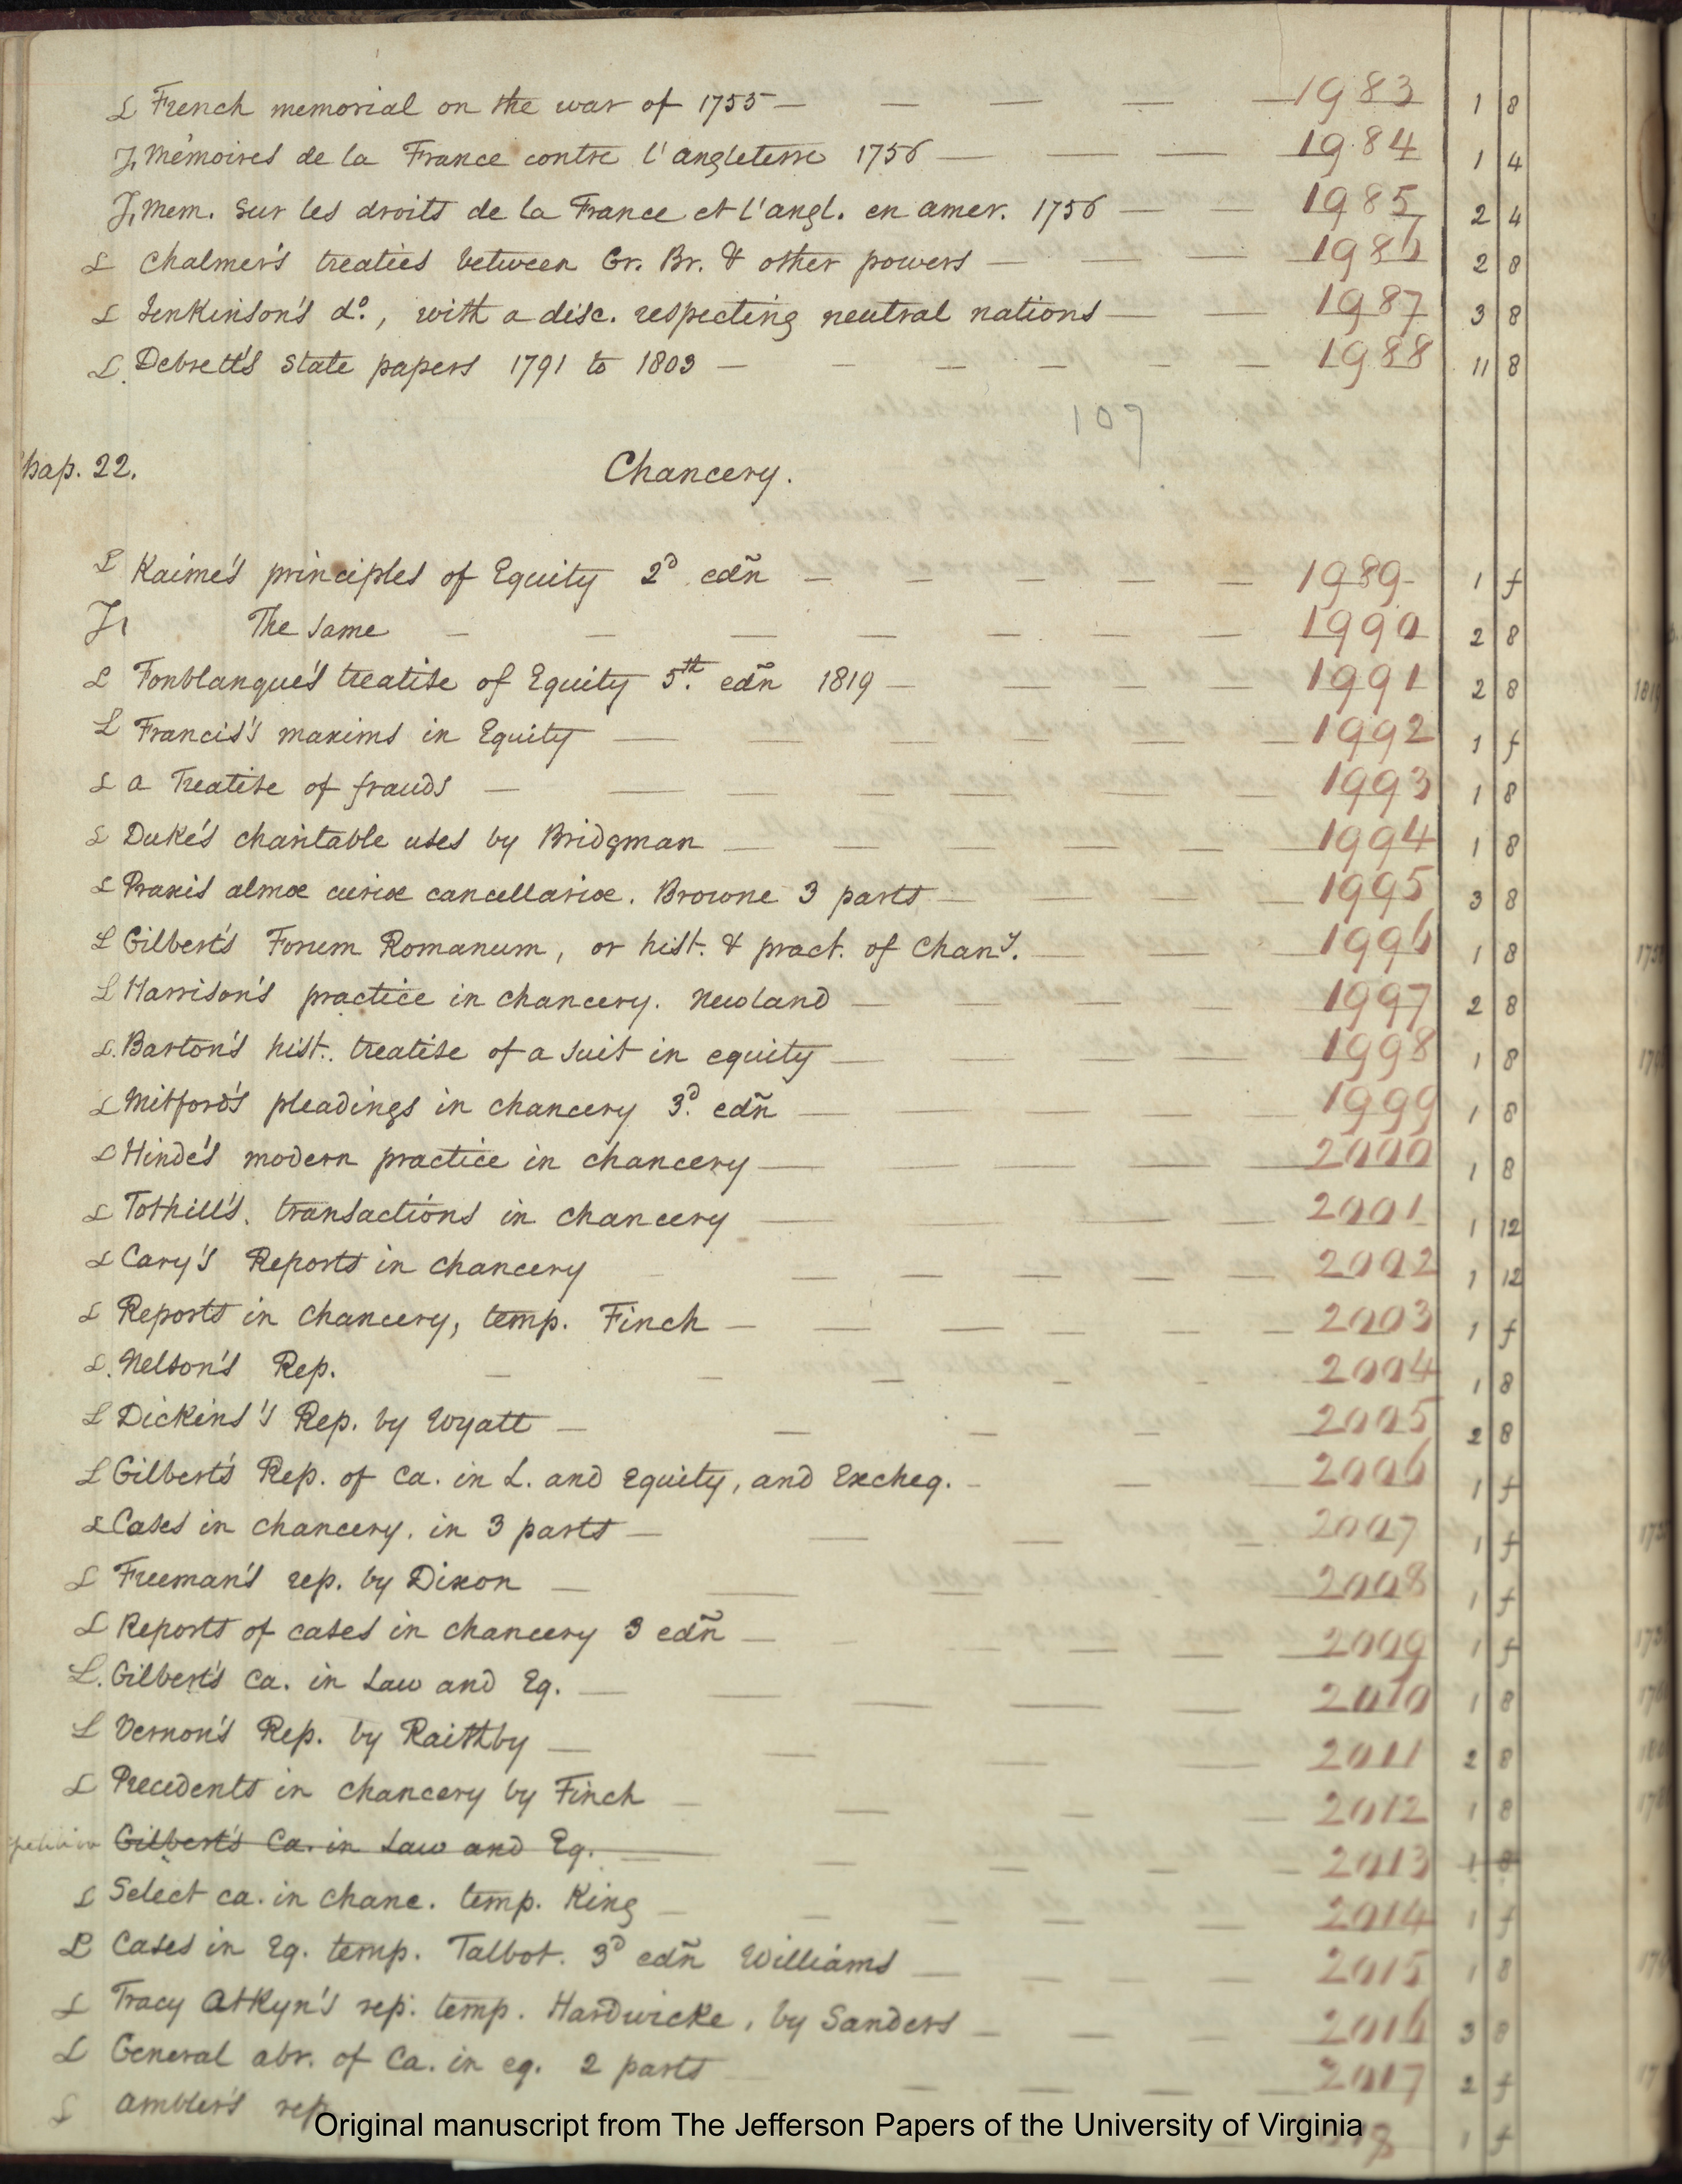 L French memorial on the war of 1755 — — — — — 1983 1 8
J, Mémoires de la France contre l'angleterre 1756 — — — 1984 1 4
J, Mem. sur les droits de la France et l'angl. en amer. 1756 — — 1985 2 4
L Chalmer's treaties between Gr. Br. & other powers — — — 1986 2 8
L Jenkinson's do., with a disc. respecting neutral nations — — 1987 3 8
L. Debrett's State papers 1791 to 1803 — — — — — — 1988 11 8
109
hap. 22. Chancery.
L Kaime's principles of Equity 2d. edñ — — — — — 1989 1 f
J, The same — — — — — — — 1990 2 8
L Fonblanque's treatise of Equity 5th. edñ 1819 — — — — 1991 2 8
L Francis's maxims in Equity — — — — — — 1992 1 f
L a Treatise of frauds — — — — — — — 1993 1 8
L Duke's charitable uses by Bridgman — — — — — 1994 1 8
L Praxis almæ curiæ cancellariæ. Browne 3 parts — — — — 1995 3 8
L Gilbert's Forum Romanum, or hist. & pract. of Chany. — — — 1996 1 8
L Harrison's practice in chancery. Newland — — — — 1997 2 8
L. Barton's hist. treatise of a suit in equity — — — — 1998 1 8
L Mitford's pleadings in chancery 3d. edñ — — — — 1999 1 8
L Hinde's modern practice in chancery — — — — — 2000 1 8
L Tothill's. transactions in chancery — — — — — 2001 1 12
L Cary's Reports in chancery — — — — — 2002 1 12
L Reports in Chancery, temp. Finch — — — — — — 2003 1 f
L. Nelson's Rep. — — — — — — 2004 1 8
L Dickins's Rep. by Wyatt — — — — — 2005 2 8
L Gilbert's Rep. of Ca. in L. and Equity, and Excheq. — — — 2006 1 f
L Cases in chancery. in 3 parts — — — — 2007 1 f
L Freeman's rep. by Dixon — — — — — 2008 1 f
L Reports of cases in chancery 3 edñ — — — — — 2009 1 f
L. Gilbert's Ca. in Law and Eq. — — — — — 2010 1 8
L Vernon's Rep. by Raithby — — — — 2011 2 8
L Precedents in chancery by Finch — — — — 2012 1 8
Gilbert's Ca. in Law and Eq. — — — — — 2013 1 8
L Select ca. in chanc. temp. King — — — — — 2014 1 f
L Cases in Eq. temp. Talbot. 3d edñ Williams — — — — 2015 1 8
L Tracy Atkyn's rep. temp. Hardwicke, by Sanders — — — 2016 3 8
L General abr. of Ca. in eq. 2 parts — — — — 2017 2 f
L Ambler's rep 1 f
Original manuscript from The Jefferson Papers of the University of Virginia